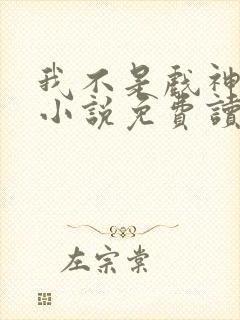 我不是戲神
小說免費讀
左宗棠